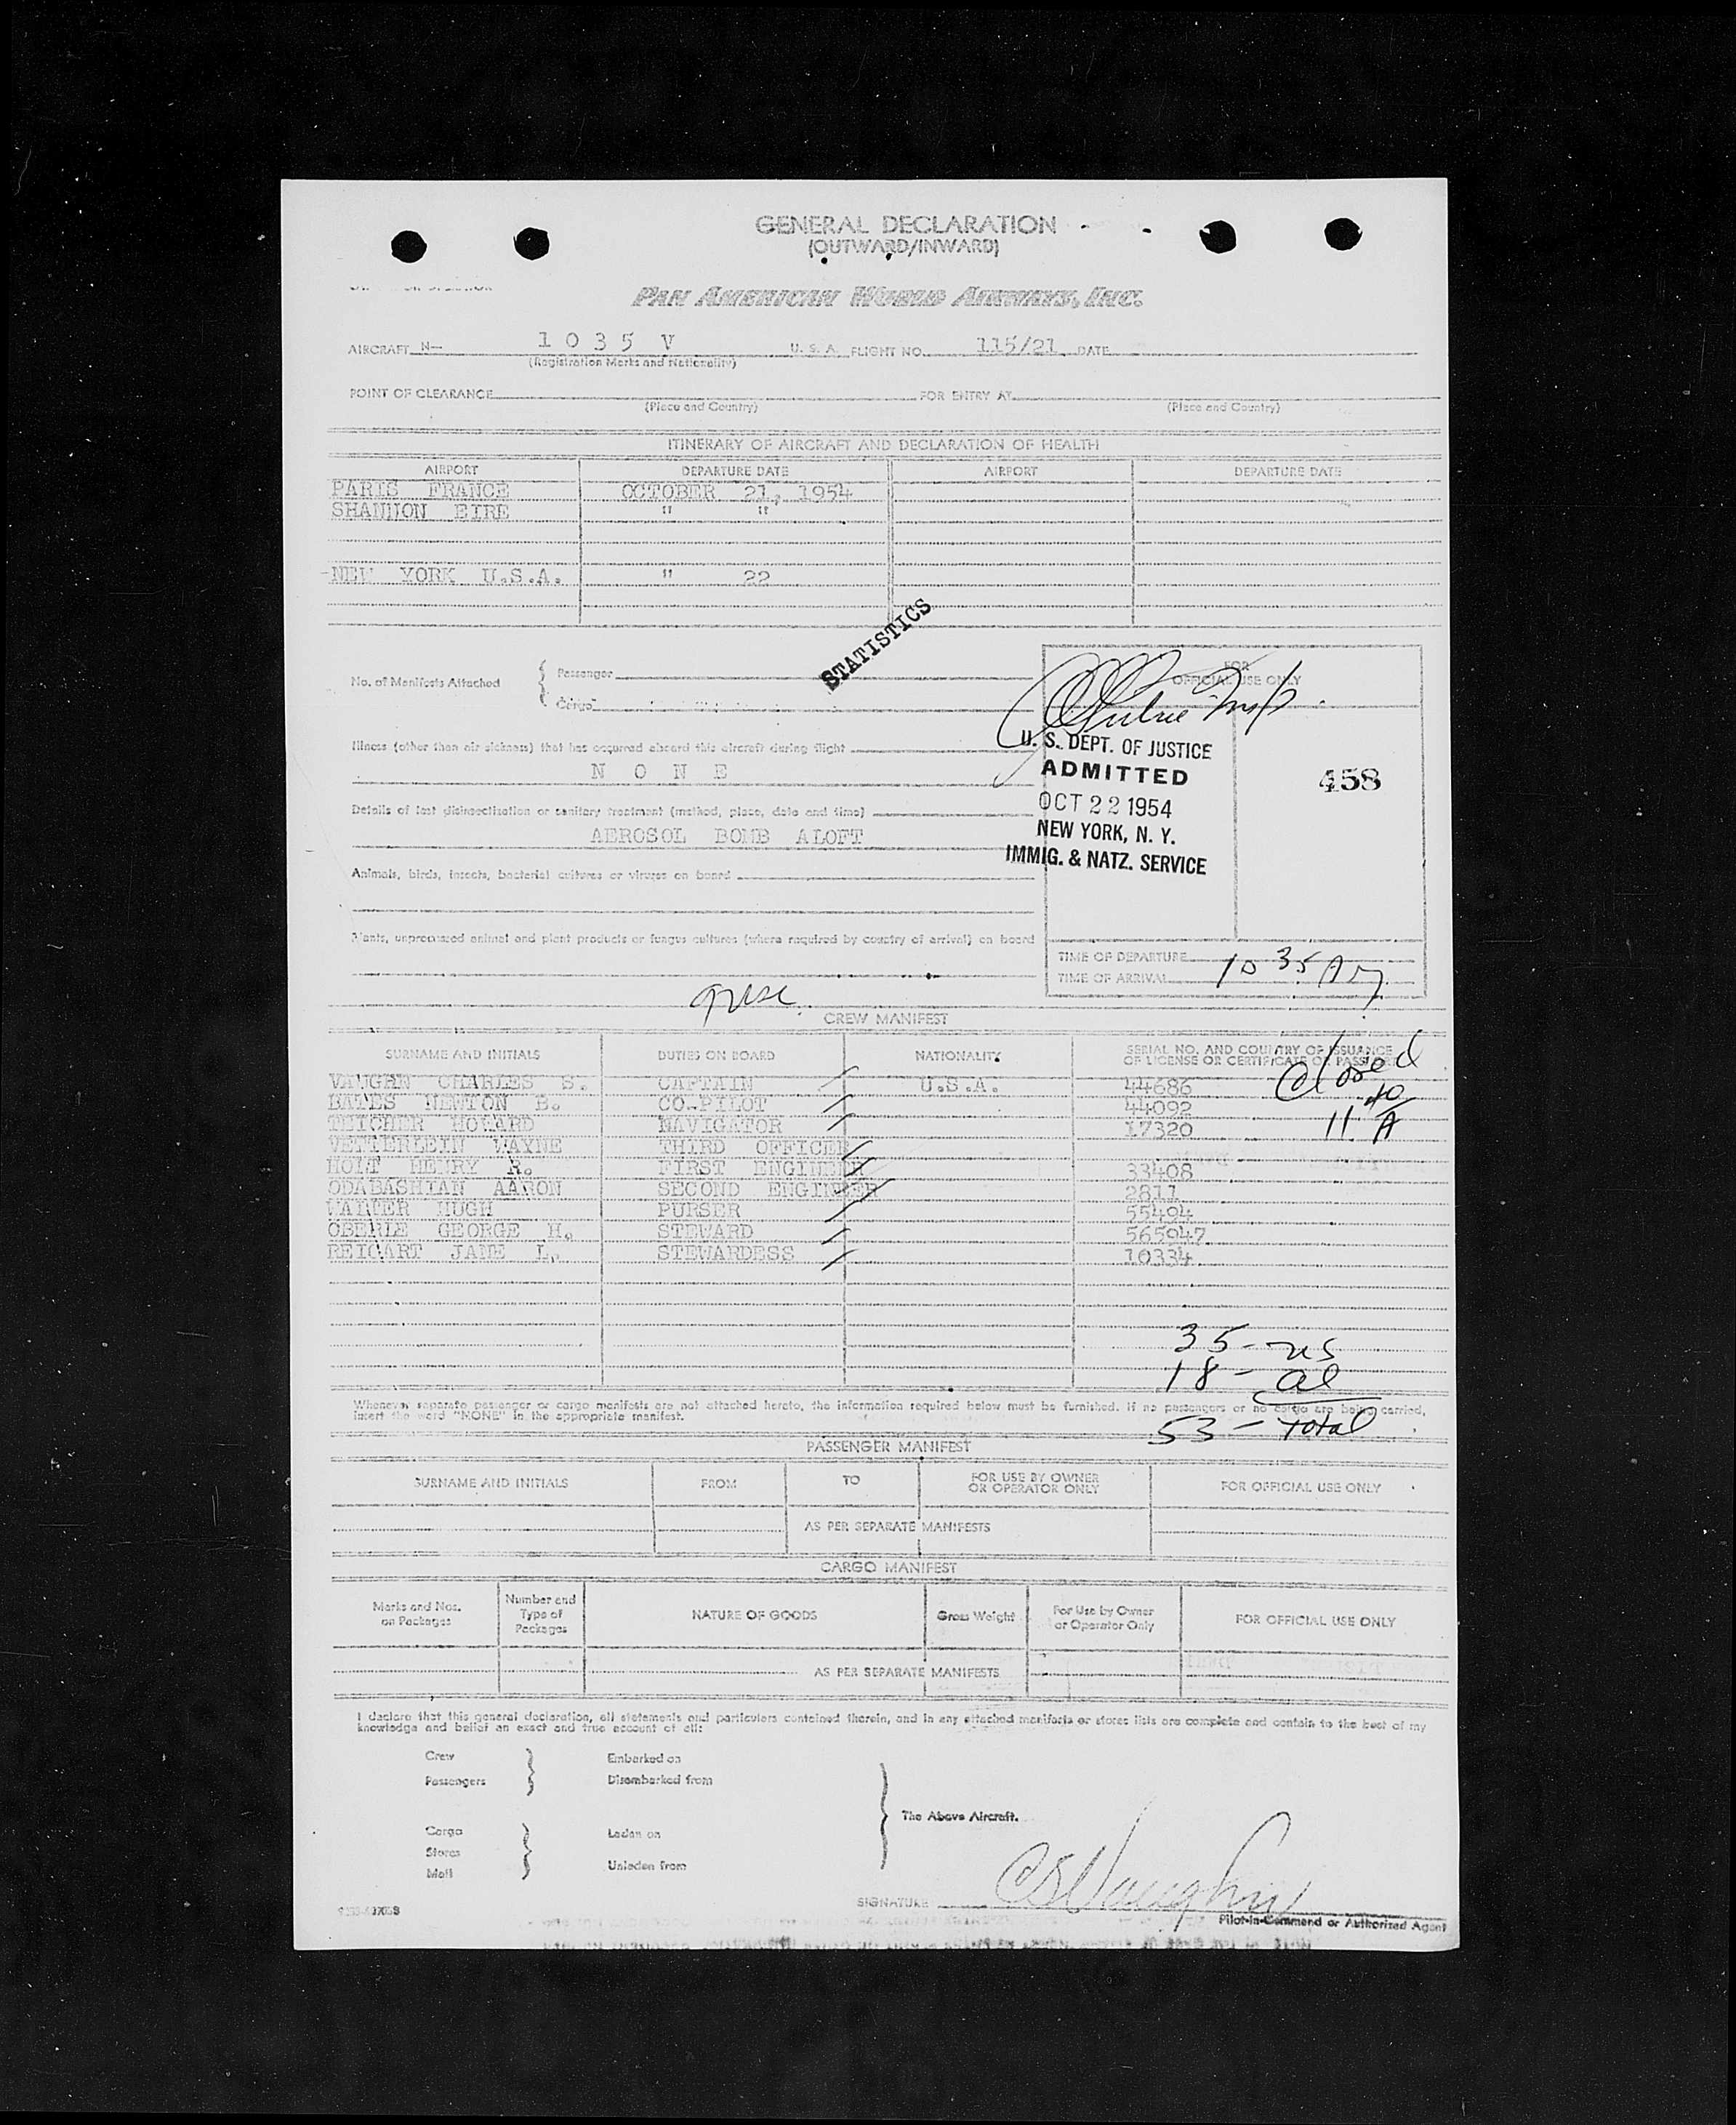 GENERAL DECLARATION
(OUTWARD/INWARD)
PAN AMERICAN WORLD AIRWAYS, INC.
AIRCRAFT N— 1 0 3 5 V U. S. A. FLIGHT NO. 115/21 DATE
(Registration Marks and Nationality)
POINT OF CLEARANCE FOR ENTRY AT
(Place and Country) (Place and Country)
ITINERARY OF AIRCRAFT AND DECLARATION OF HEALTH
AIRPORT DEPARTURE DATE AIRPORT DEPARTURE DATE
PARIS FRANCE OCTOBER 21, 1954
SHANNON EIRE " "
NEW YORK U.S.A. " 22
STATISTICS
No. of Manifests Attached { Passenger
Cargo
FOR
OFFICIAL USE ONLY
Illness (other than air sickness) that has occurred aboard this aircraft during flight
N O N E
U. S. DEPT. OF JUSTICE
ADMITTED
OCT 22 1954
NEW YORK, N. Y.
IMMIG. & NATZ. SERVICE
458
Details of last disinsectization or sanitary treatment (method, place, date and time)
AEROSOL BOMB ALOFT
Animals, birds, insects, bacterial cultures or viruses on board
Plants, unprocessed animal and plant products or fungus cultures (where required by country of arrival) on board
TIME OF DEPARTURE
TIME OF ARRIVAL 10 35 A
CREW MANIFEST
SURNAME AND INITIALS DUTIES ON BOARD NATIONALITY SERIAL NO. AND COUNTRY OF ISSUANCE
OF LICENSE OR CERTIFICATE OR PASSPORT
Closed
11 40 A
VAUGHN CHARLES S. CAPTAIN U.S.A. 44686
BATES NEWTON B. CO-PILOT 44092
TEICHER HOWARD NAVIGATOR 17320
VETTERLEIN WAYNE THIRD OFFICER
HOYT HENRY R. FIRST ENGINEER 33408
ODABASHIAN AARON SECOND ENGINEER 2811
WALTER HUGH PURSER 55494
OBERLE GEORGE H. STEWARD 565947
REIGART JANE L. STEWARDESS 10334
35 - us
18 - al
53 - Total
Whenever separate passenger or cargo manifests are not attached hereto, the information required below must be furnished. If no passengers or no cargo are being carried,
insert the word "NONE" in the appropriate manifest.
PASSENGER MANIFEST
SURNAME AND INITIALS FROM TO FOR USE BY OWNER
OR OPERATOR ONLY FOR OFFICIAL USE ONLY
AS PER SEPARATE MANIFESTS
CARGO MANIFEST
Marks and Nos.
on Packages Number and
Type of
Packages NATURE OF GOODS Gross Weight For Use by Owner
or Operator Only FOR OFFICIAL USE ONLY
AS PER SEPARATE MANIFESTS
I declare that this general declaration, all statements and particulars contained therein, and in any attached manifests or stores lists are complete and contain to the best of my
knowledge and belief an exact and true account of all:
Crew Embarked on
Passengers Disembarked from
The Above Aircraft.
Cargo Laden on
Stores
Mail Unladen from
SIGNATURE C S Vaughn
Pilot-in-Command or Authorized Agent